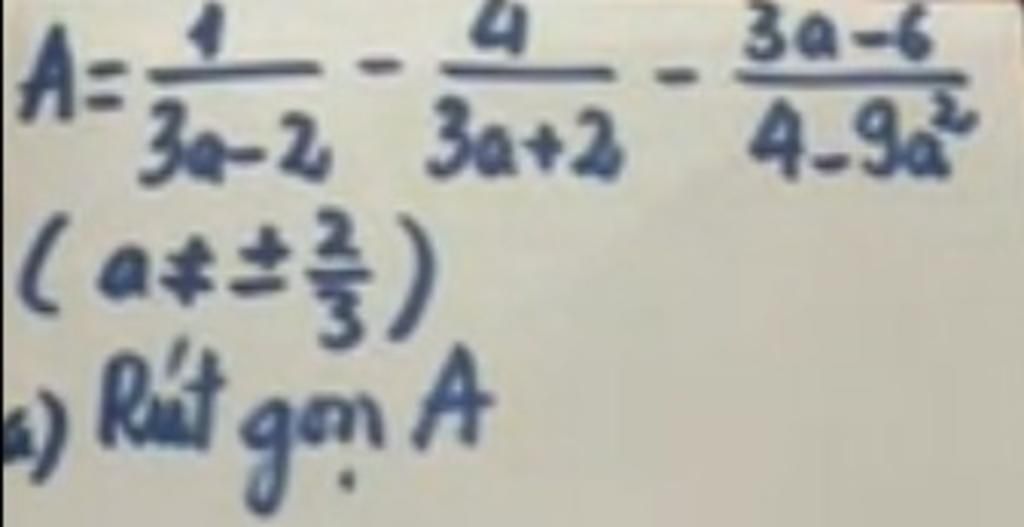 A = \frac{1}{3a-2} - \frac{4}{3a+2} - \frac{3a-6}{4-9a^2}
( a ≠ ± \frac{2}{3} )
a) Rút gọn A